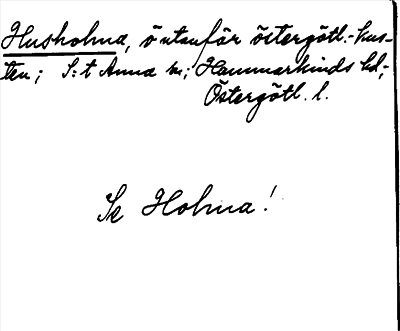 Husholma, ö utanför östergötl. kus-
ten; S:t Anna sn; Hammarkinds hd;
Östergötl. l.
Se Holma!